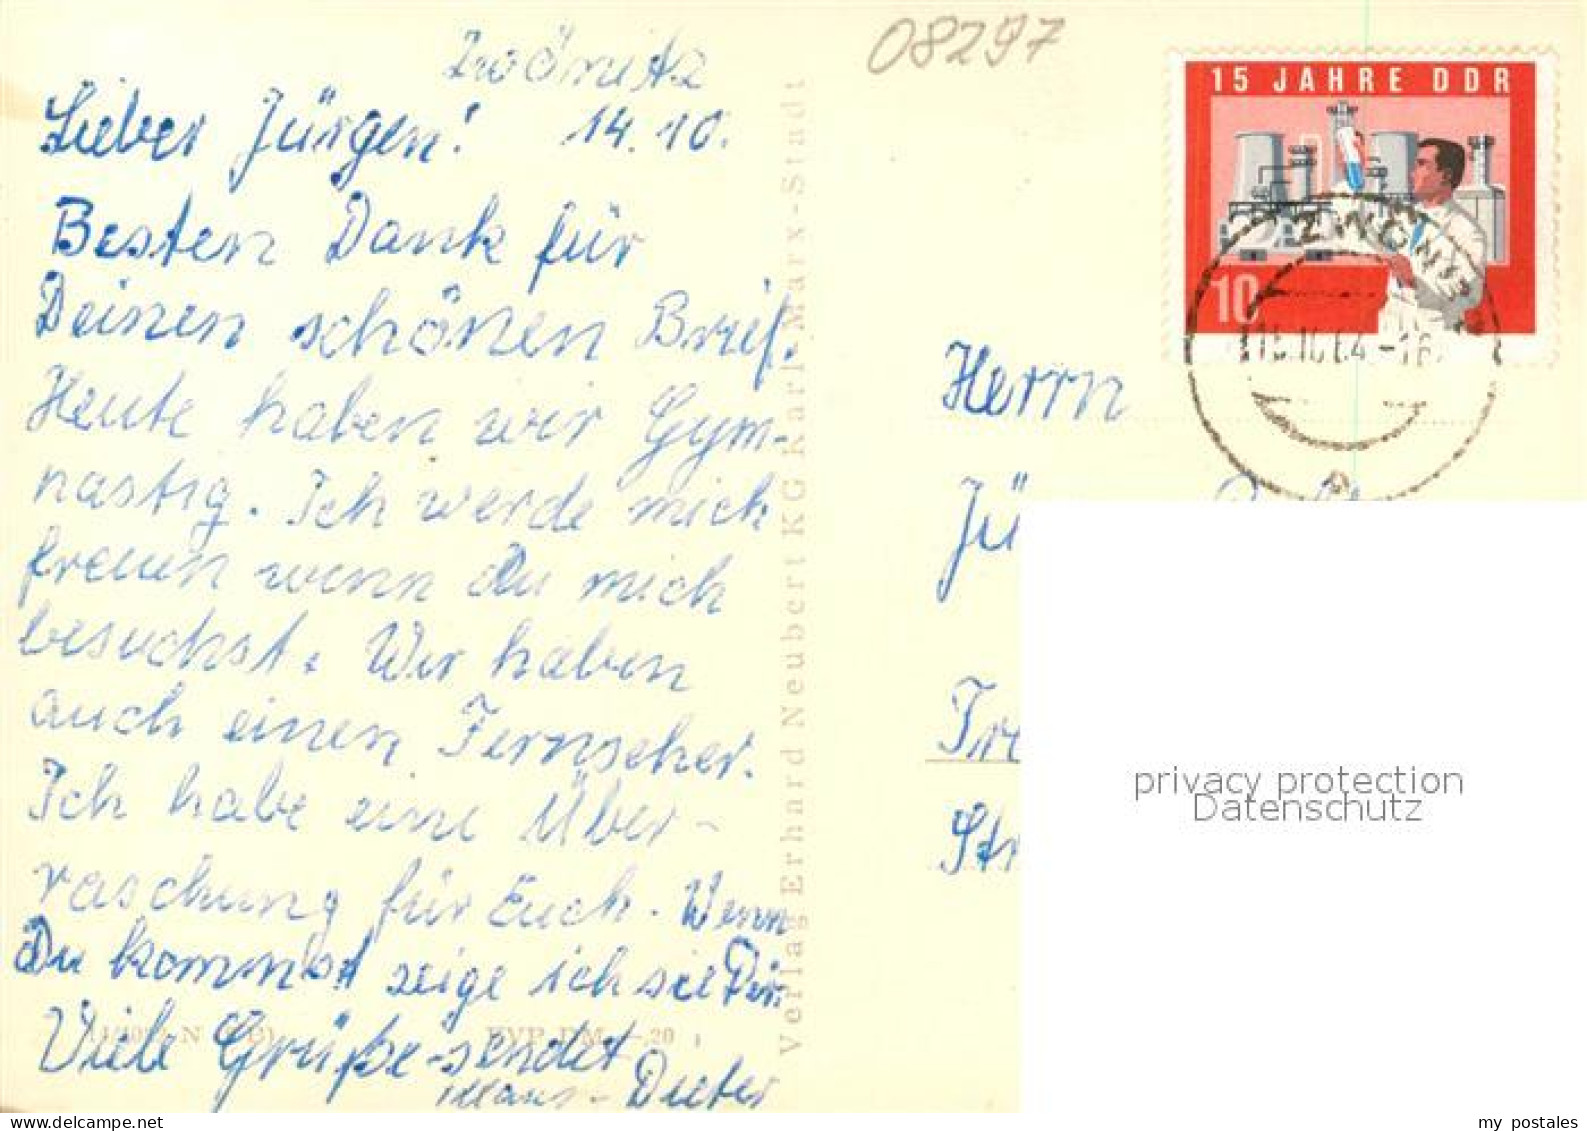 08297
Zwönitz
14.10.
Lieber Jürgen!
Besten Dank für
Deinen schönen Brief.
Heute haben wir Gym-
nastig. Ich werde mich
freuen wenn Du mich
besuchst. Wir haben
auch einen Fernseher.
Ich habe eine Über-
raschung für Euch. Wenn
Du kommst zeige ich sie Dir.
Viele Grüße sendet
Hans-Dieter
Verlag Erhard Neubert KG Karl-Marx-Stadt
EVP DM -,20
15 JAHRE DDR
10
ZWÖNITZ
Herrn
Jü
Tr
Str
privacy protection
Datenschutz
my_postales